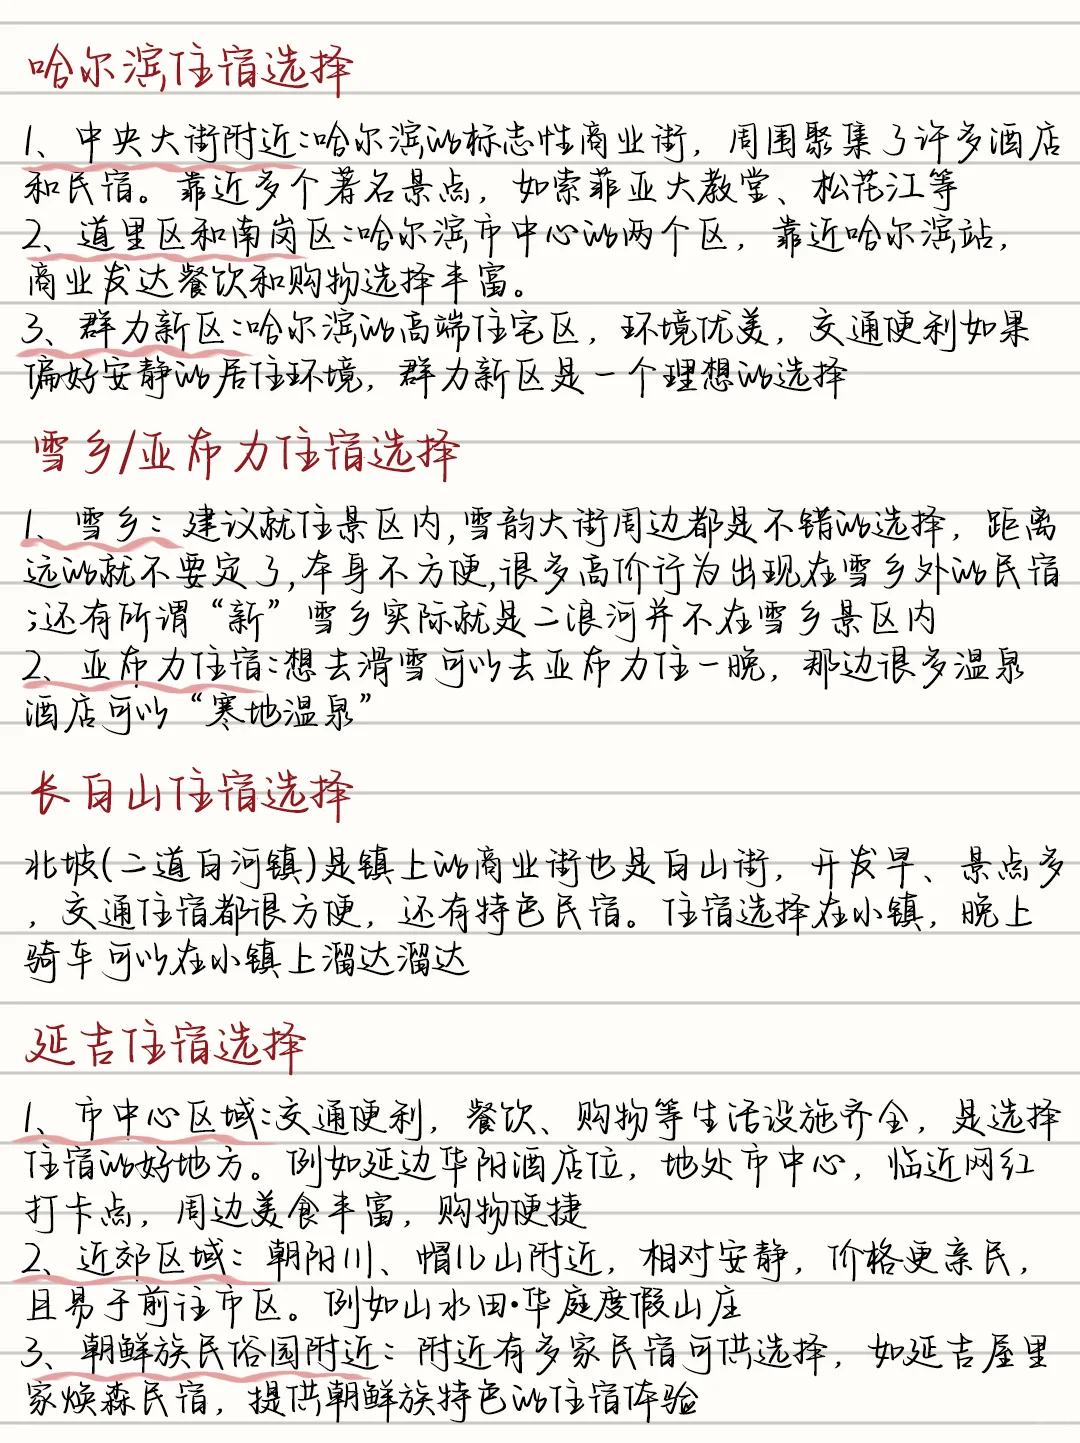 哈尔滨住宿选择
1、中央大街附近:哈尔滨的标志性商业街，周围聚集了许多酒店
和民宿。靠近多个著名景点，如索菲亚大教堂、松花江等
2、道里区和南岗区:哈尔滨市中心的两个区，靠近哈尔滨站，
商业发达餐饮和购物选择丰富。
3、群力新区:哈尔滨的高端住宅区，环境优美，交通便利如果
偏好安静的居住环境，群力新区是一个理想的选择
雪乡/亚布力住宿选择
1、雪乡: 建议就住景区内,雪韵大街周边都是不错的选择，距离
远的就不要定了,本身不方便,很多高价行为出现在雪乡外的民宿
;还有所谓“新”雪乡实际就是二浪河并不在雪乡景区内
2、亚布力住宿:想去滑雪可以去亚布力住一晚，那边很多温泉
酒店可以“寒地温泉”
长白山住宿选择
北坡(二道白河镇)是镇上的商业街也是白山街，开发早、景点多
，交通住宿都很方便，还有特色民宿。住宿选择在小镇，晚上
骑车可以在小镇上溜达溜达
延吉住宿选择
1、市中心区域:交通便利，餐饮、购物等生活设施齐全，是选择
住宿的好地方。例如延边华阳酒店位，地处市中心，临近网红
打卡点，周边美食丰富，购物便捷
2、近郊区域: 朝阳川、帽儿山附近，相对安静，价格更亲民，
且易于前往市区。例如山水田·华庭度假山庄
3、朝鲜族民俗园附近: 附近有多家民宿可供选择，如延吉屋里
家焕森民宿，提供朝鲜族特色的住宿体验